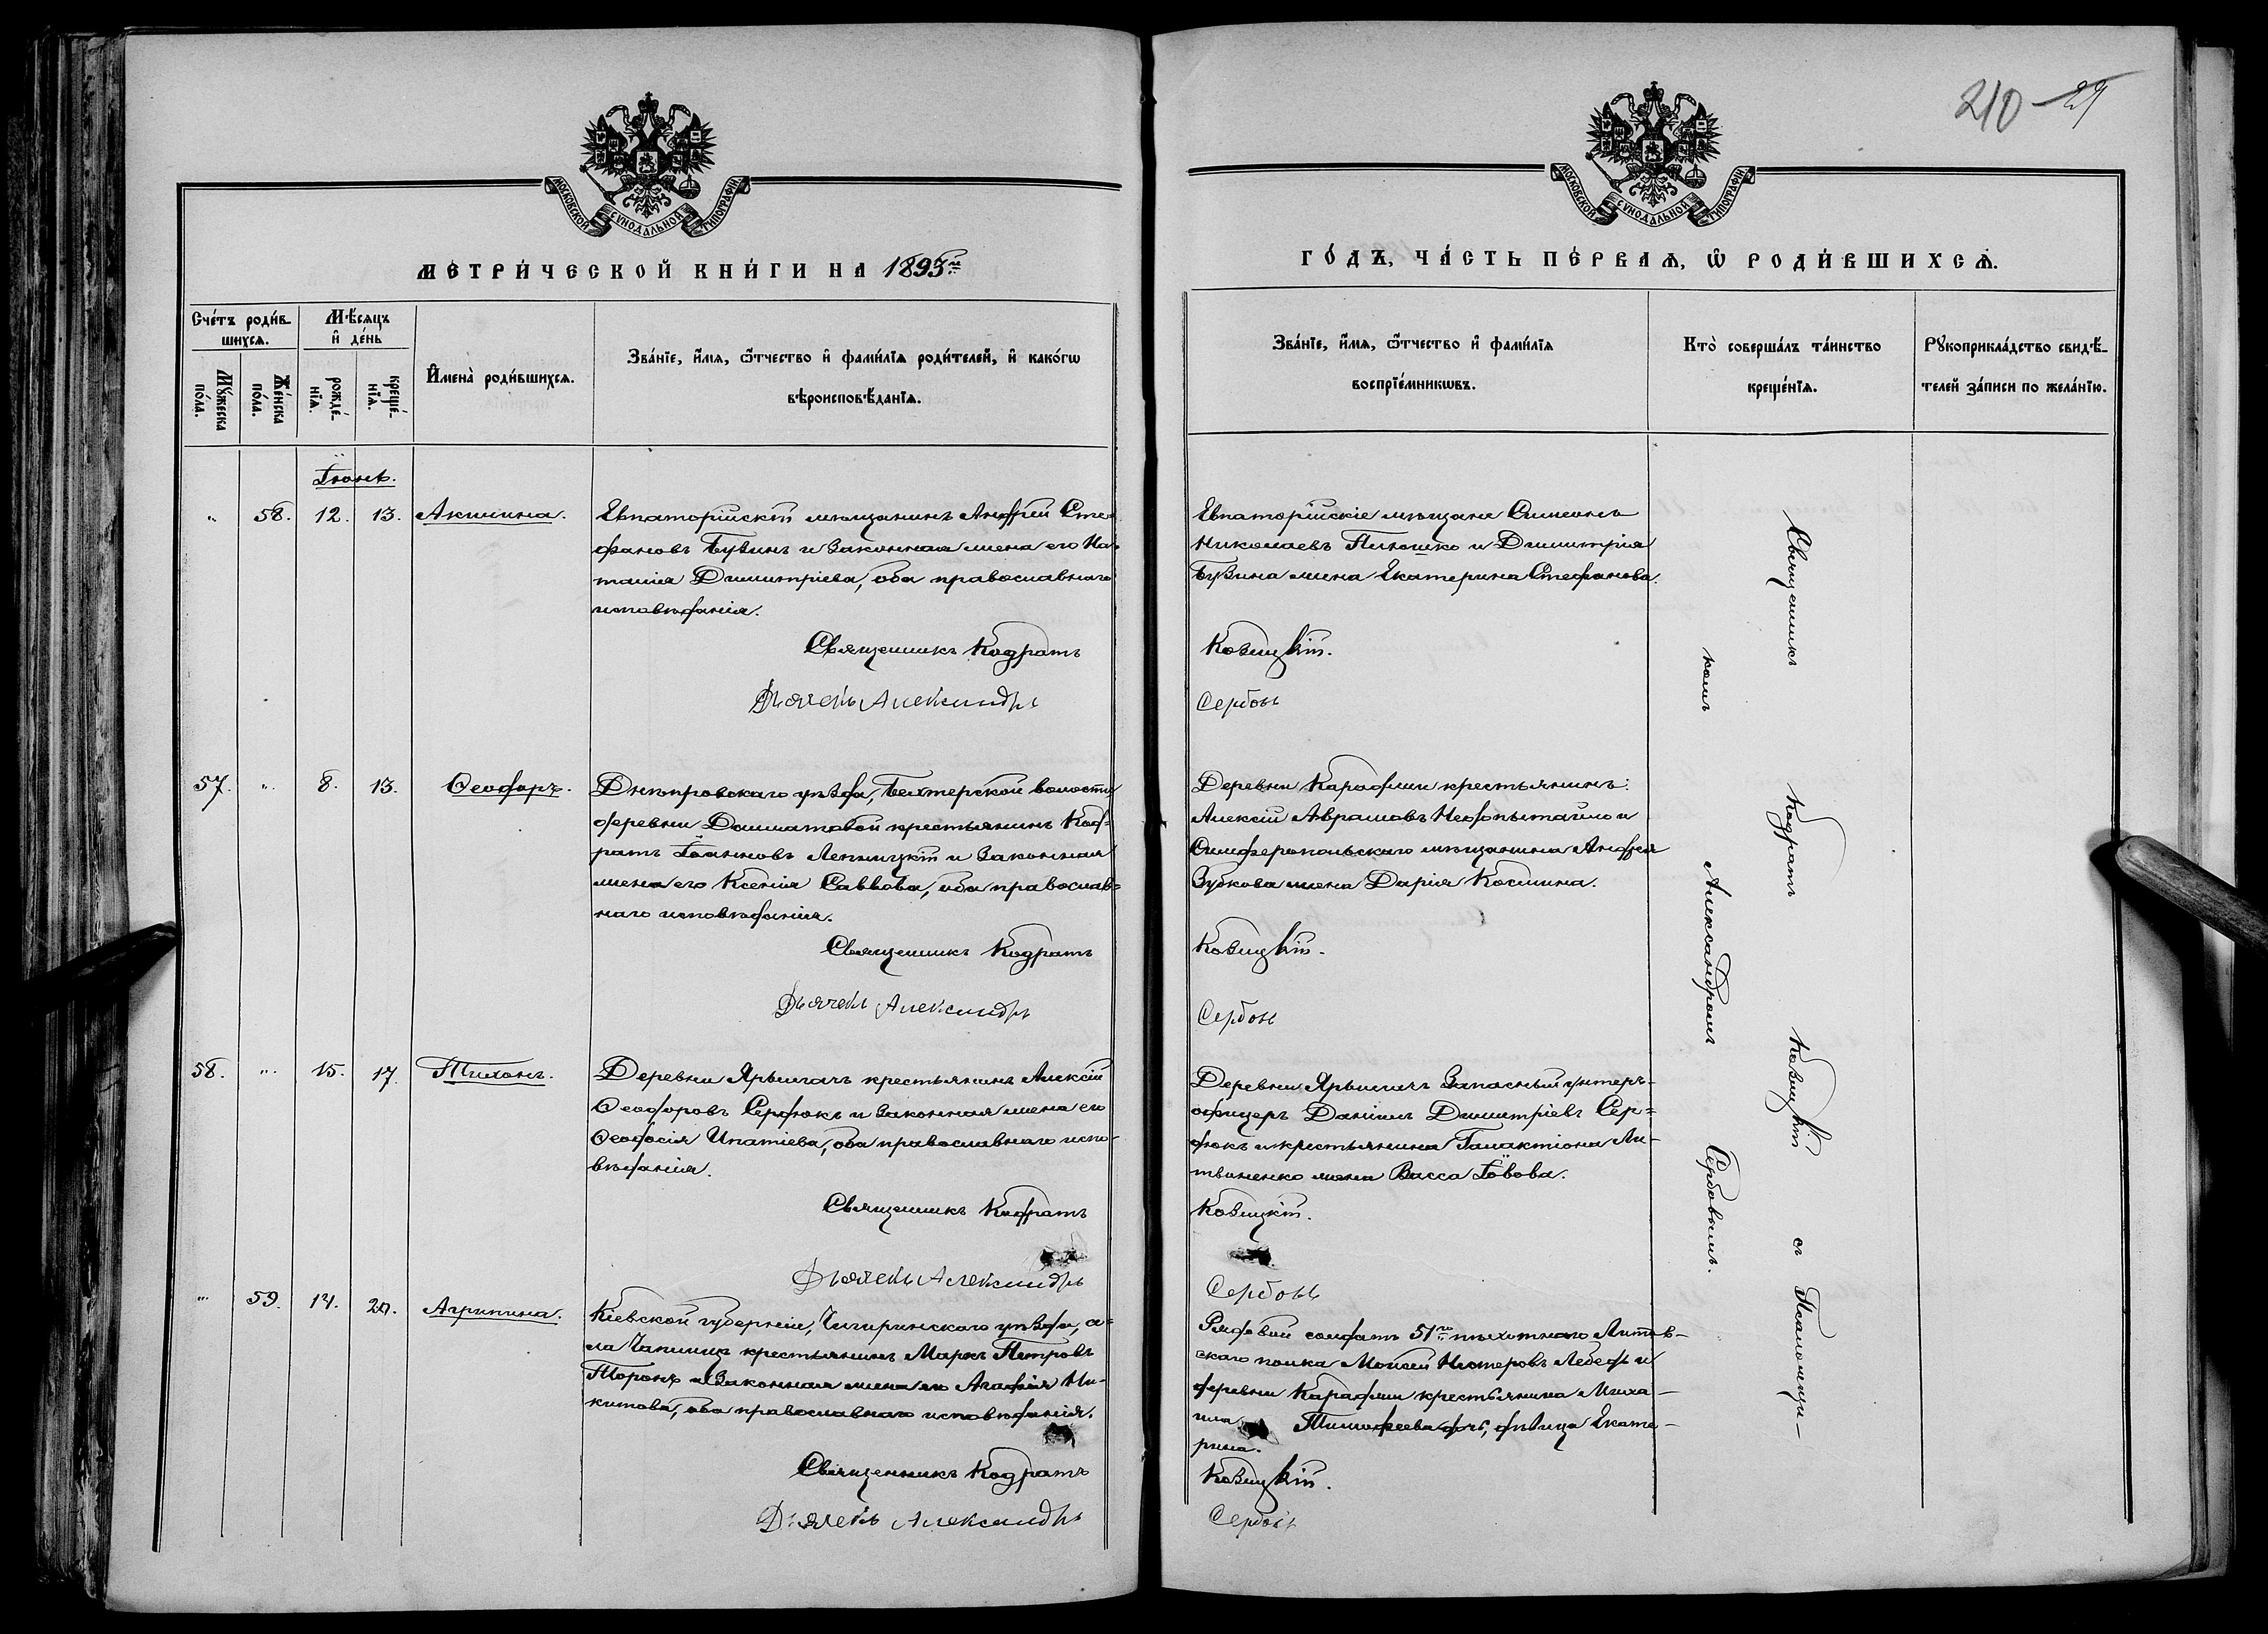 210 29
МОСКОВСКОЙ СѴНОДАЛЬНОЙ ТИПОГРАФІИ
МЕТРИ́ЧЕСКОЙ КНИ́ГИ НА 1893й
Сче́тъ роди́в-
шихсѧ.
Мѣ́сяцъ
и҆ де́нь
Мꙋ́жеска
по́ла.
Же́нска
по́ла.
рожде́-
нїѧ.
креще́-
нїѧ.
И҆мена̀ роди́вшихсѧ.
Зва́нїе, и҆́мѧ, ѻ҆́тчество и҆ фами́лїѧ роди́телей, и҆ како́гѡ
вѣроисповѣ́данїѧ.
Іюнь.
" 58. 12. 13. Акилина.
Евпаторійскій мѣщанинъ Андрей Сте-
фановъ Бузинъ и законная жена его На-
талія Димитріева, оба православнаго
исповѣданія.
Священникъ Кодратъ
Дьячекъ Александръ
57. " 8. 13. Ѳеодоръ.
Днѣпровскаго уѣзда, Бехтерской волости
деревни Долматовой крестьянинъ Код-
ратъ Іоанновъ Лепницкій и законная
жена его Ксенія Саввова, оба православ-
наго исповѣданія.
Священникъ Кодратъ
Дьячекъ Александръ
58. " 15. 17. Тихонъ.
Деревни Ярылгачъ крестьянинъ Алексій
Ѳеодоровъ Сердюкъ и законная жена его
Ѳеодосія Ипатіева, оба православнаго испо-
вѣданія.
Священникъ Кодратъ
Дьячекъ Александръ
" 59. 14. 20. Агрипина.
Кіевской губерніи, Чигиринскаго уѣзда, се-
ла Чаплищъ крестьянинъ Маркъ Петровъ
и законная жена его Агафія Ни-
китова, оба православнаго исповѣданія.
Священникъ Кодратъ
Дьячекъ Александръ
МОСКОВСКОЙ СѴНОДАЛЬНОЙ ТИПОГРАФІИ
ГО́ДЪ, ЧА́СТЬ ПЕ́РВАѦ, Ѽ РОДИ́ВШИХСѦ.
Зва́нїе, и҆́мѧ, ѻ҆́тчество и҆ фами́лїѧ
воспрїе́мникѡвъ.
Кто̀ соверша́лъ та́инство
креще́нїѧ.
Рꙋкоприкла́дство свидѣ́-
телей за́писи по жела́нїю.
Евпаторійскіе мѣщане Симеонъ
Николаевъ Пилюшко и Димитрія
Бузина жена Екатерина Стефанова.
Козицкій.
Сербовъ
Деревни Караджи крестьянинъ
Алексій Аврамовъ Недопытайло и
Симферопольскаго мѣщанина Андрея
Зубкова жена Дарія Косьмина.
Козицкій.
Сербовъ
Деревни Ярылгачъ запасный унтеръ-
офицеръ Даніилъ Димитріевъ Сер-
дюкъ и крестьянина Галактіона Ли-
твиненко жена Васса Іовова.
Козицкій.
Сербовъ
Рядовой солдатъ 51го пѣхотнаго Литов-
скаго полка Моисей Несторовъ Лебедь и
деревни Караджи крестьянина Миха-
ила Тимофеева дочь, дѣвица Екате-
рина.
Козицкій.
Сербовъ
Священникъ Кодратъ Козицкій съ Псаломщи-
комъ Александромъ Сербовымъ.